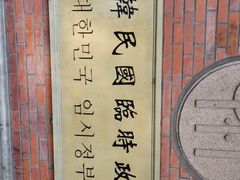 韓民國臨時政
대한민국 임시정부